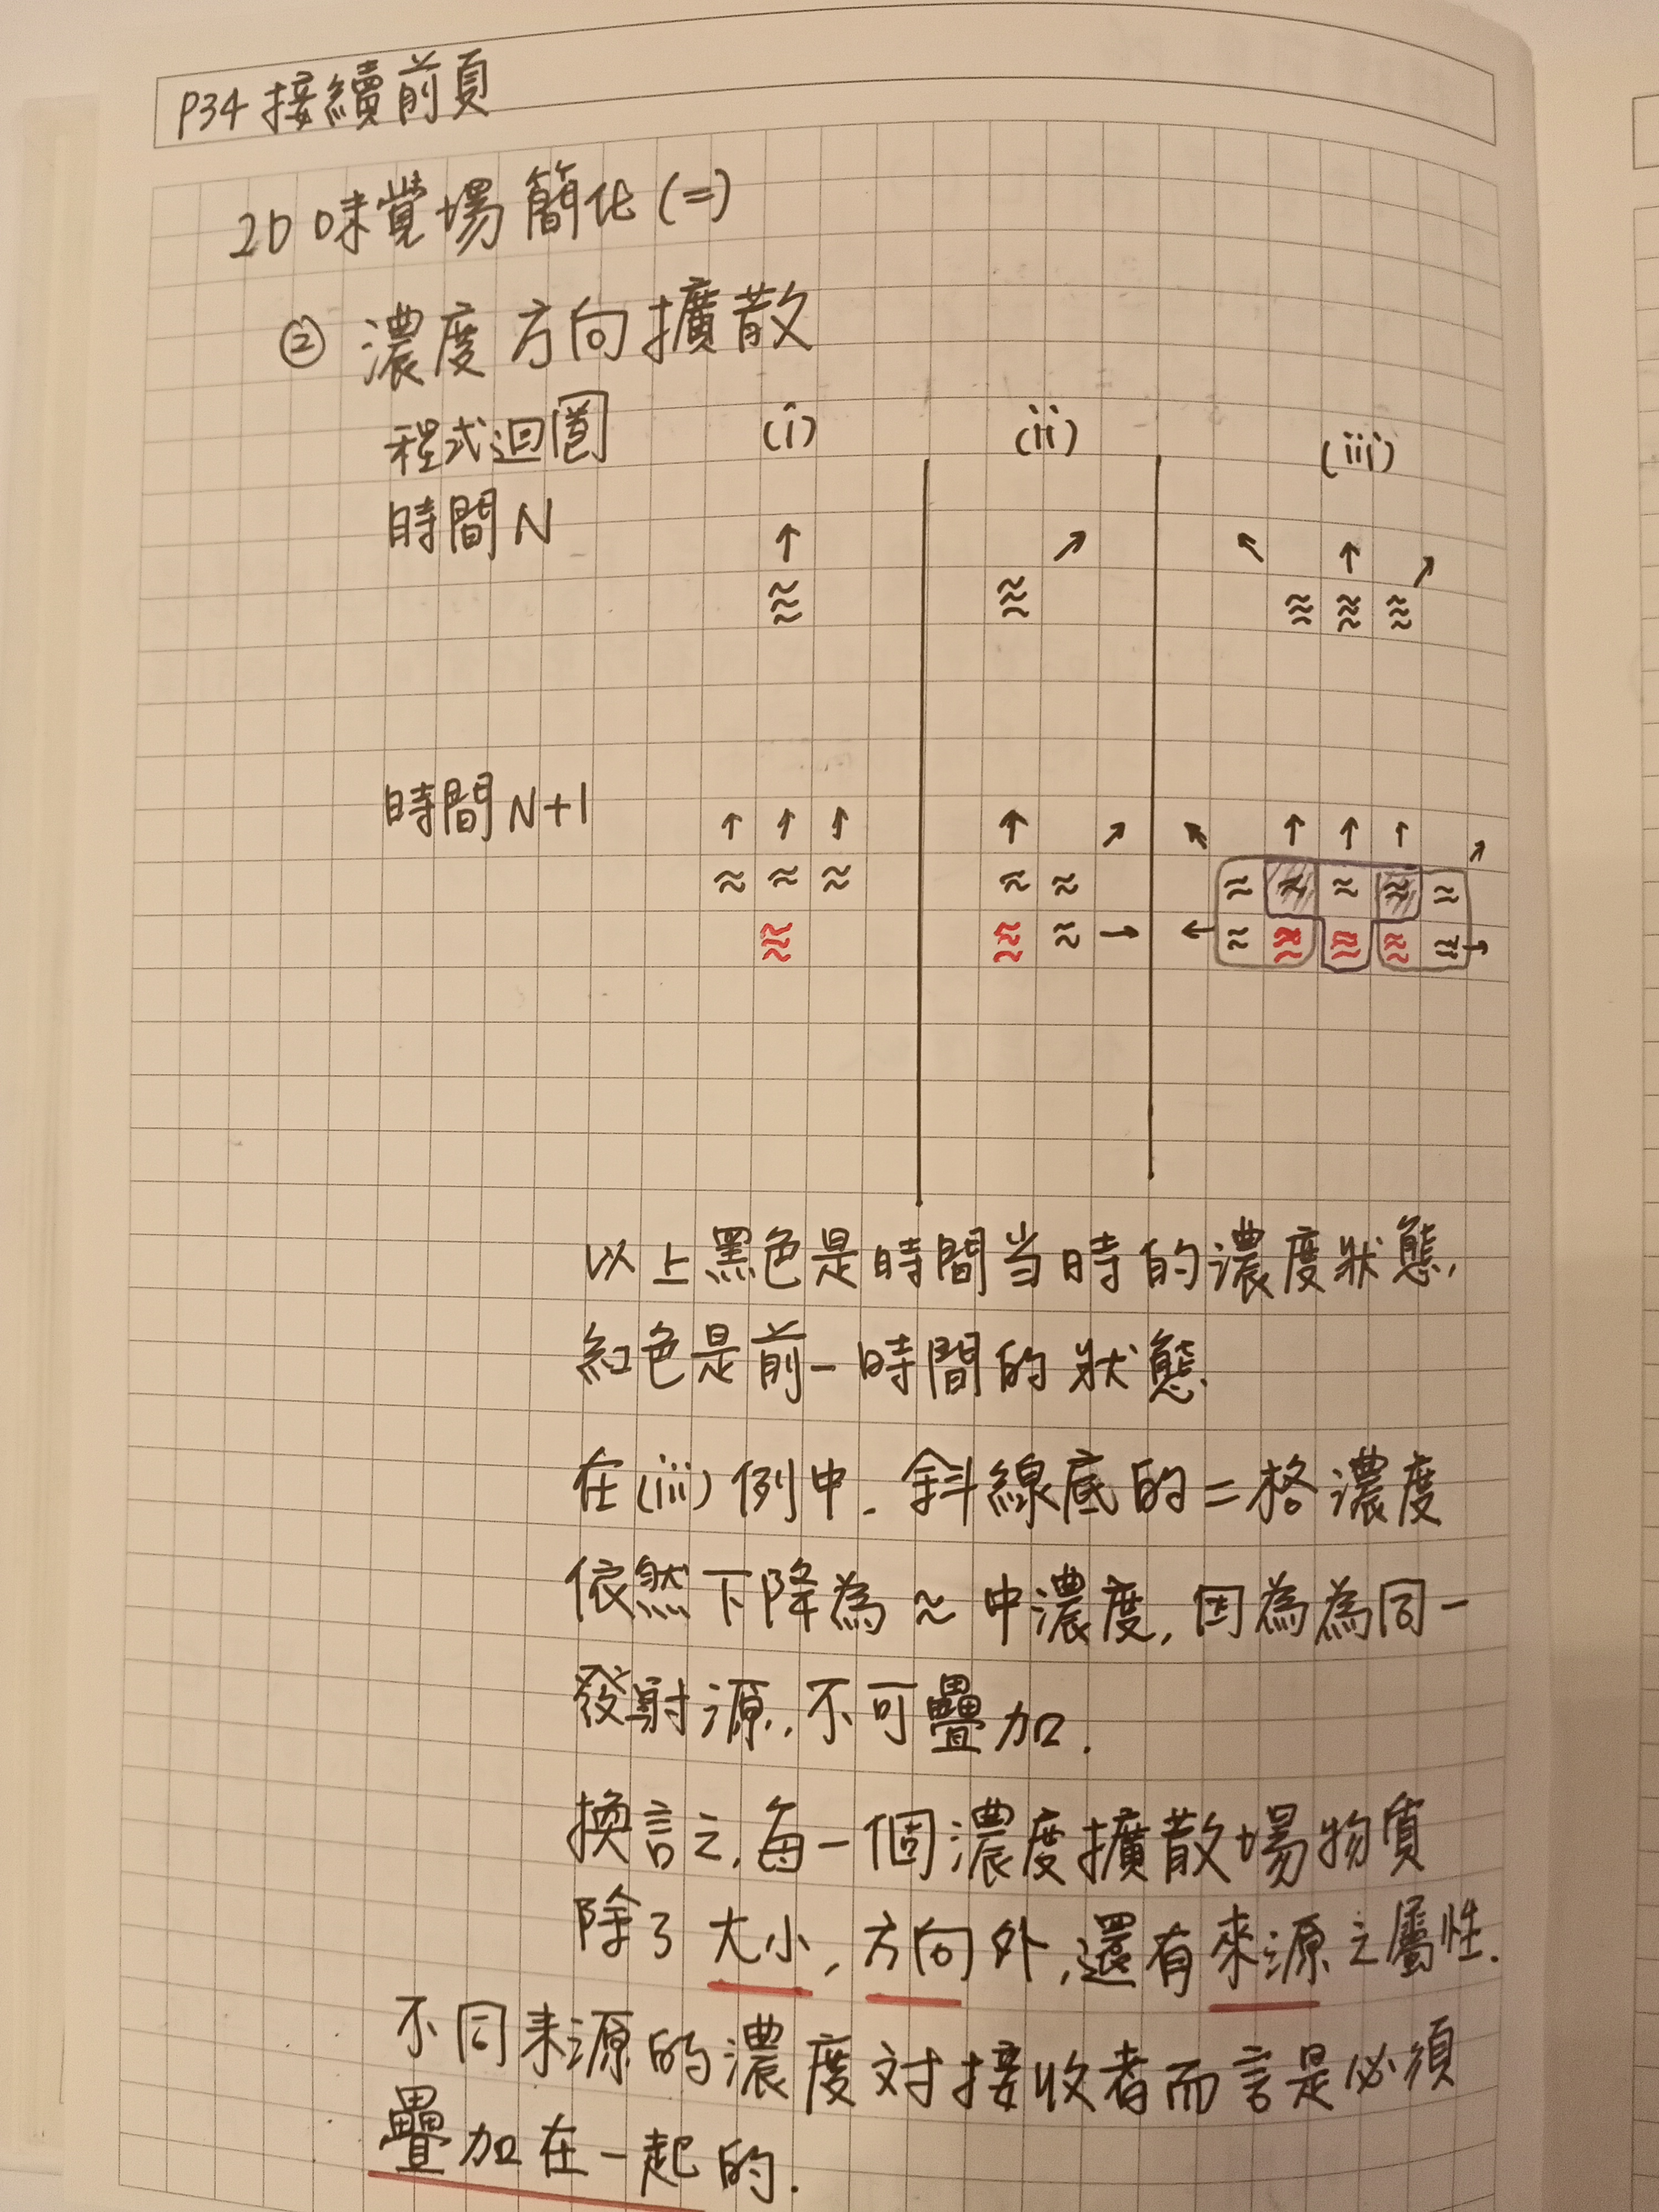 P34 接續前頁
2D 味覚場簡化(二)
② 濃度方向擴散
程式迴圈 (i) (ii) (iii)
時間N
時間N+1
以上黑色是時間当時的濃度狀態,
紅色是前一時間的狀態.
在(iii)例中.斜線底的二格濃度
依然下降為≈中濃度,因為為同一
發射源,不可疊加.
換言之,每一個濃度擴散場物質
除了大小,方向外,還有來源之屬性.
不同来源的濃度对接收者而言是必須
疊加在一起的.